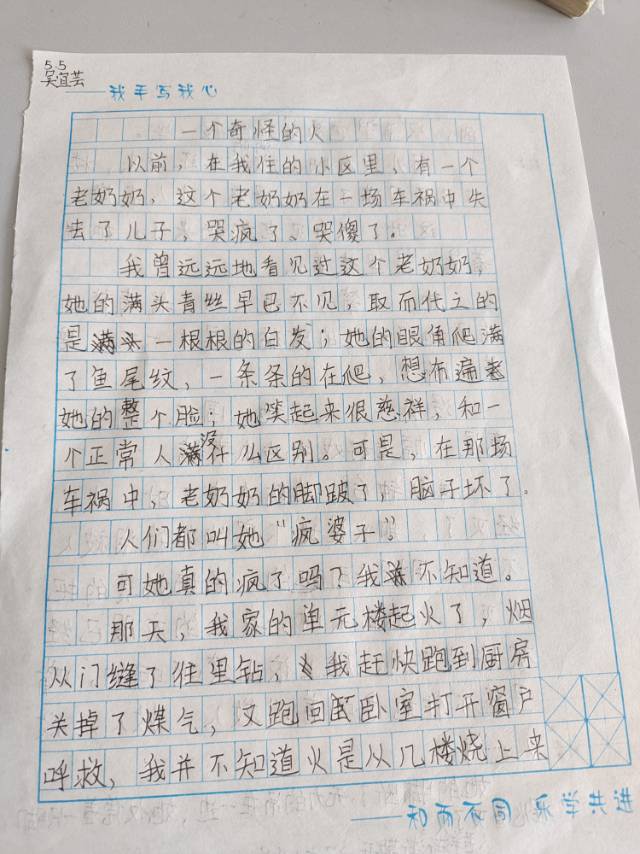 55
吴宜芸
我手写我心
一个奇怪的人
以前，在我住的小区里，有一个
老奶奶，这个老奶奶在一场车祸中失
去了儿子，哭疯了、哭傻了。
我曾远远地看见过这个老奶奶，
她的满头青丝早已不见，取而代之的
是一根根的白发；她的眼角爬满
了鱼尾纹，一条条的在爬，想布遍
她的整个脸；她笑起来很慈祥，和一
个正常人没什么区别。可是，在那场
车祸中，老奶奶的脚跛了，脑子坏了。
人们都叫她“疯婆子”。
可她真的疯了吗？我不知道。
那天，我家的单元楼起火了，烟
从门缝了往里钻，我赶快跑到厨房
关掉了煤气，又跑回卧室打开窗户
呼救，我并不知道火是从几楼烧上来
和而不同 乐学共进